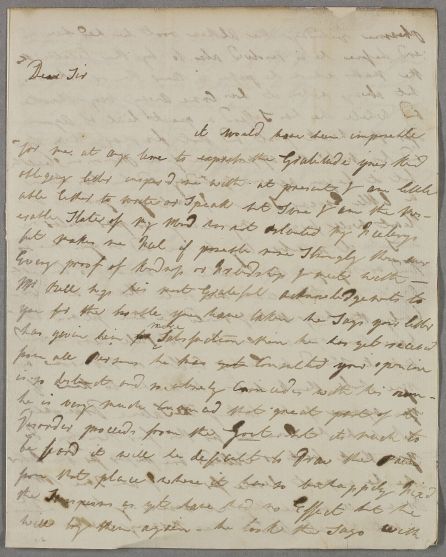 Dear Sir
it would have been impossible
for me at any time to express the Gratitude your kind
obliging letter inspired me with at present I am little
able either to write or Speak but Sure I am the mis-
erable State of my Mind has not blunted my Feelings
but makes me feel if possible more Strongly than ever
Every proof of kindness or Friendship I meet with —
Mr Bull begs his most Grateful acknowledgements to
you for the trouble you have taken he Says your letter
has given him more Satisfaction than he has yet received
from all Persons he has yet Consulted your opinion
is so distinct and so entirely Coincides with his own —
he is very much that great part of the
Disorder proceeds from the Gout but it is much to
be fear'd it will be difficult to from the
from that place where it has so unhappily fix'd
the as yet have had no Effect but he
will try them again he took the Sago with